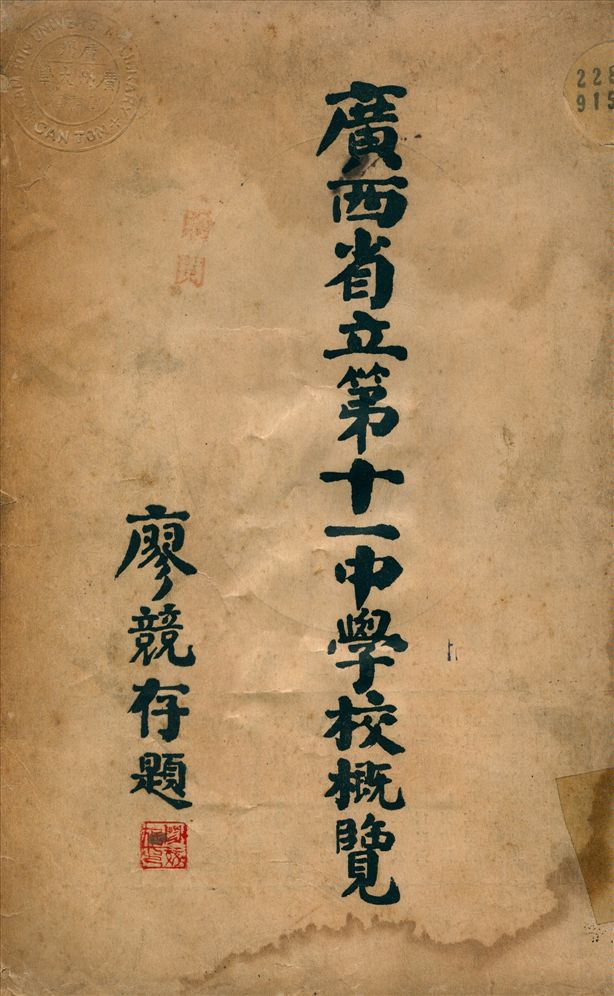 廣西省立第十一中學校概覽
廖競存題
CANTON